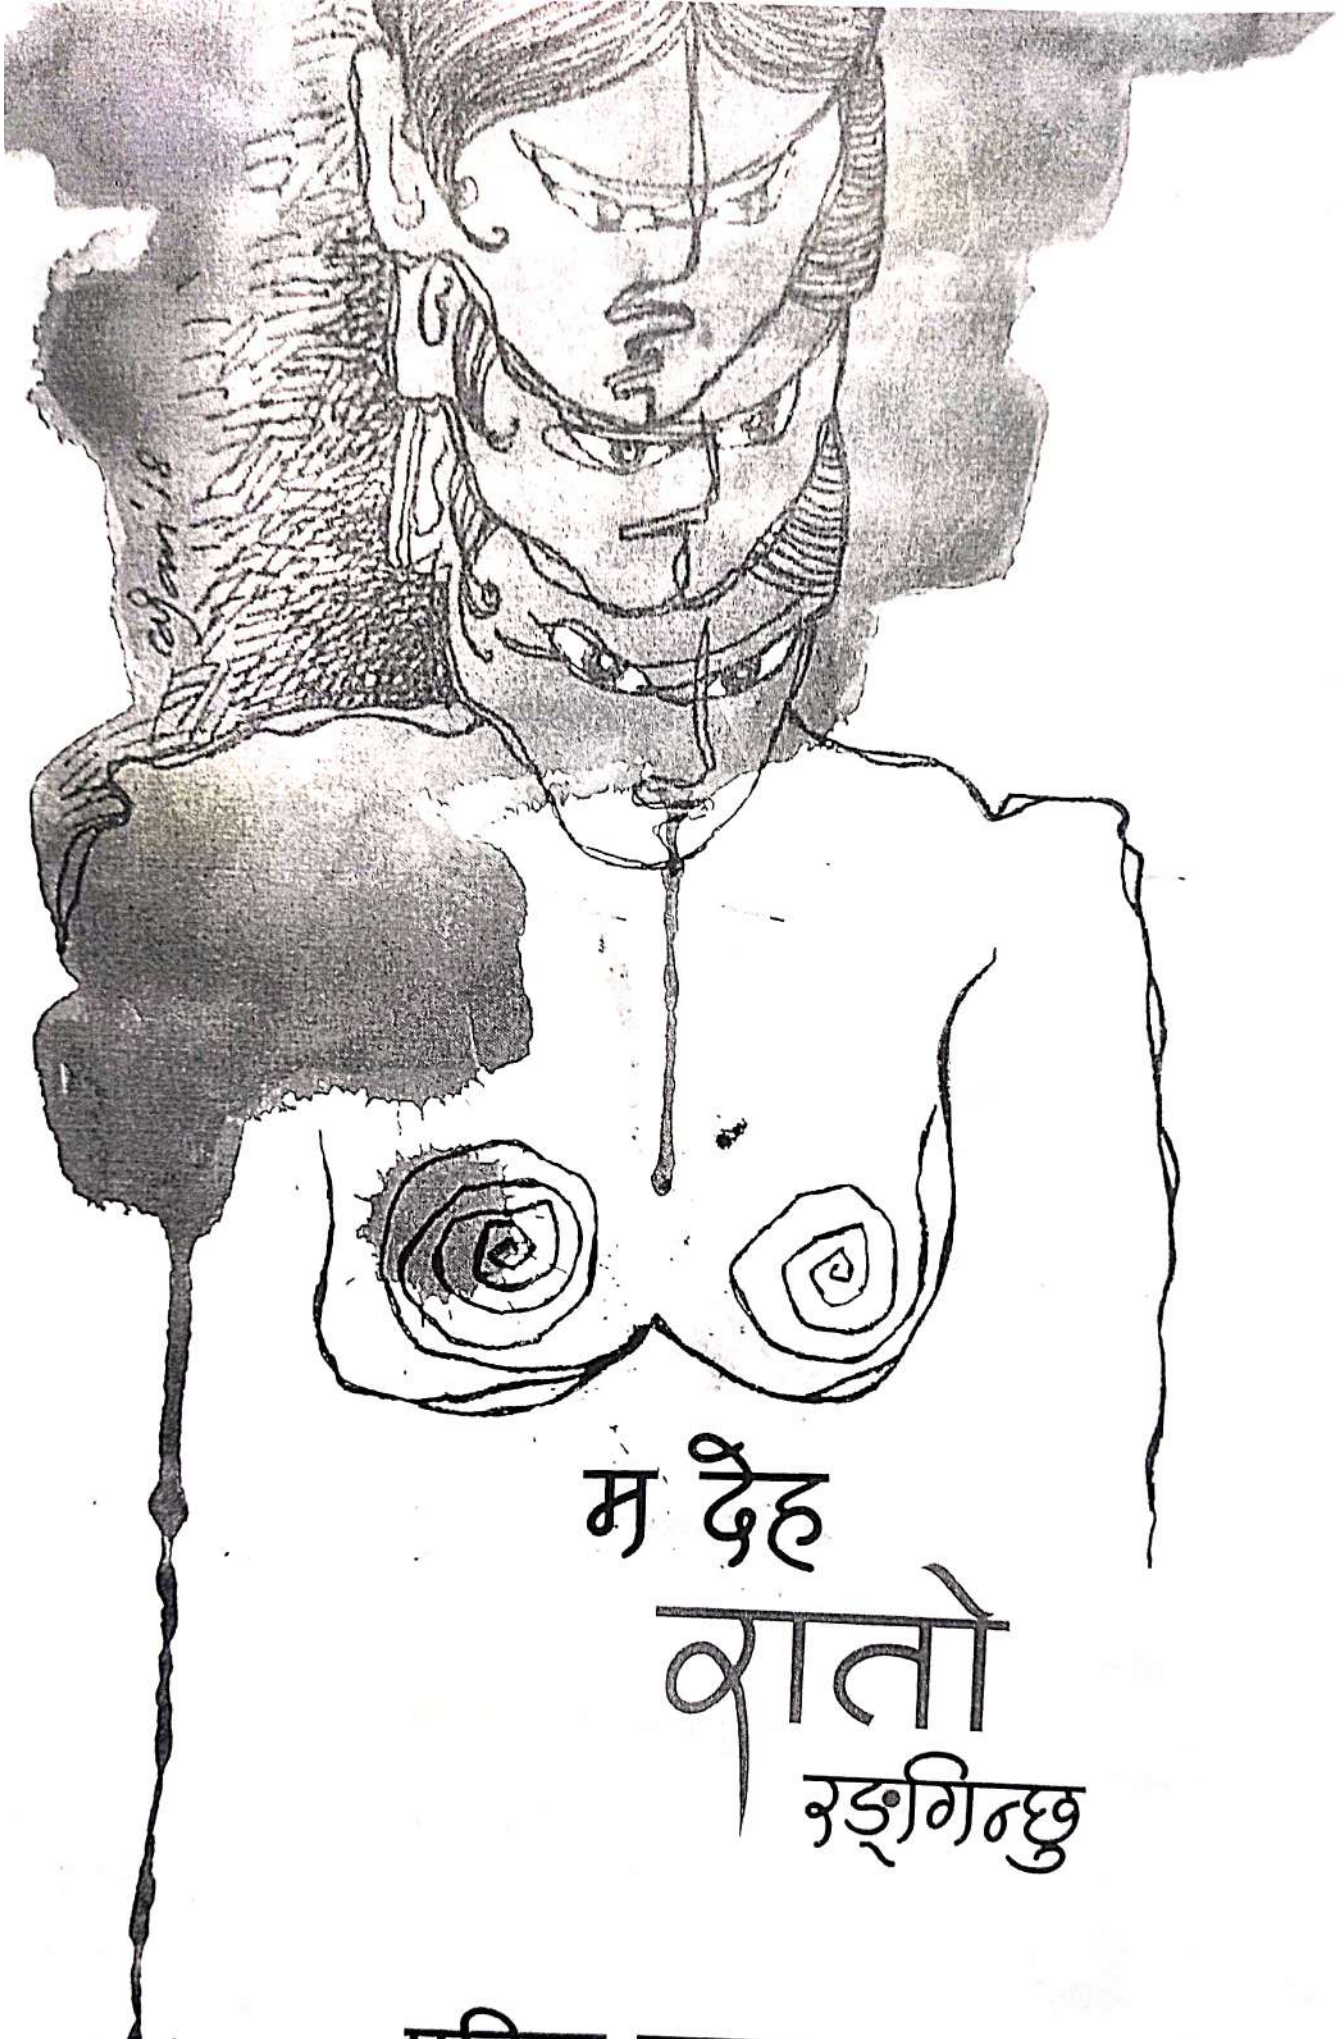 म देह
रातो
रङ्गिन्छु